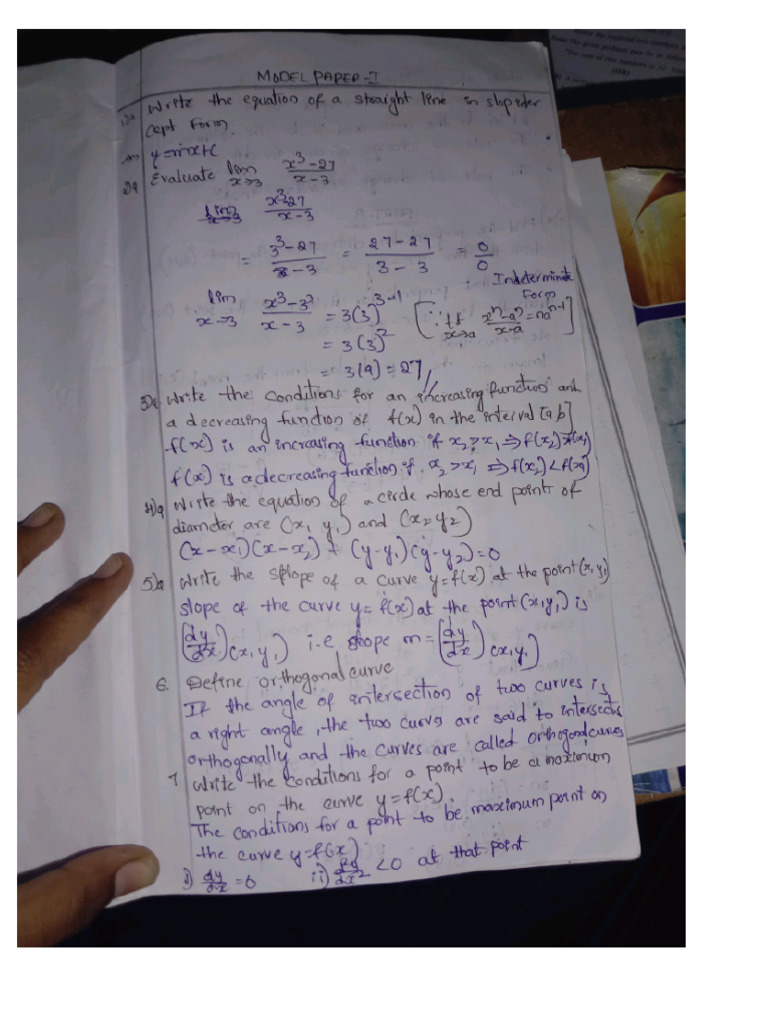 MODEL PAPER-I
1)Q Write the equation of a straight line in slop inter
cept form.
y=mx+c
2)Q Evaluate lim x→3 x³-27 / x-3
lim x→3 x³-27 / x-3
= 3³-27 / 3-3 = 27-27 / 3-3 = 0/0
Indeterminate
Form
lim x→3 x³-3³ / x-3 = 3(3)³⁻¹ [∵ lt x→a xⁿ-aⁿ / x-a = naⁿ⁻¹]
= 3(3)²
= 3(9) = 27//
3)Q Write the conditions for an increasing function and
a decreasing function of f(x) in the interval [a b]
f(x) is an increasing function if x₂>x₁ ⇒ f(x₂)>f(x₁)
f(x) is a decreasing function if x₂>x₁ ⇒ f(x₂)<f(x₁)
4)Q Write the equation of a circle whose end points of
diameter are (x₁ y₁) and (x₂ y₂)
(x-x₁)(x-x₂) + (y-y₁)(y-y₂)=0
5)Q Write the slope of a curve y=f(x) at the point (x₁ y₁)
slope of the curve y=f(x) at the point (x₁y₁) is
(dy/dx)(x₁y₁) i.e slope m = (dy/dx)(x₁y₁)
6. Define orthogonal curve
If the angle of intersection of two curves is
a right angle, the two curvs are said to intersects
orthogonally and the curves are called orthogonal curves
7 Write the conditions for a point to be a maximum
point on the curve y=f(x).
The conditions for a point to be maximum point on
the curve y=f(x)
i) dy/dx =0 ii) d²y/dx² <0 at that point